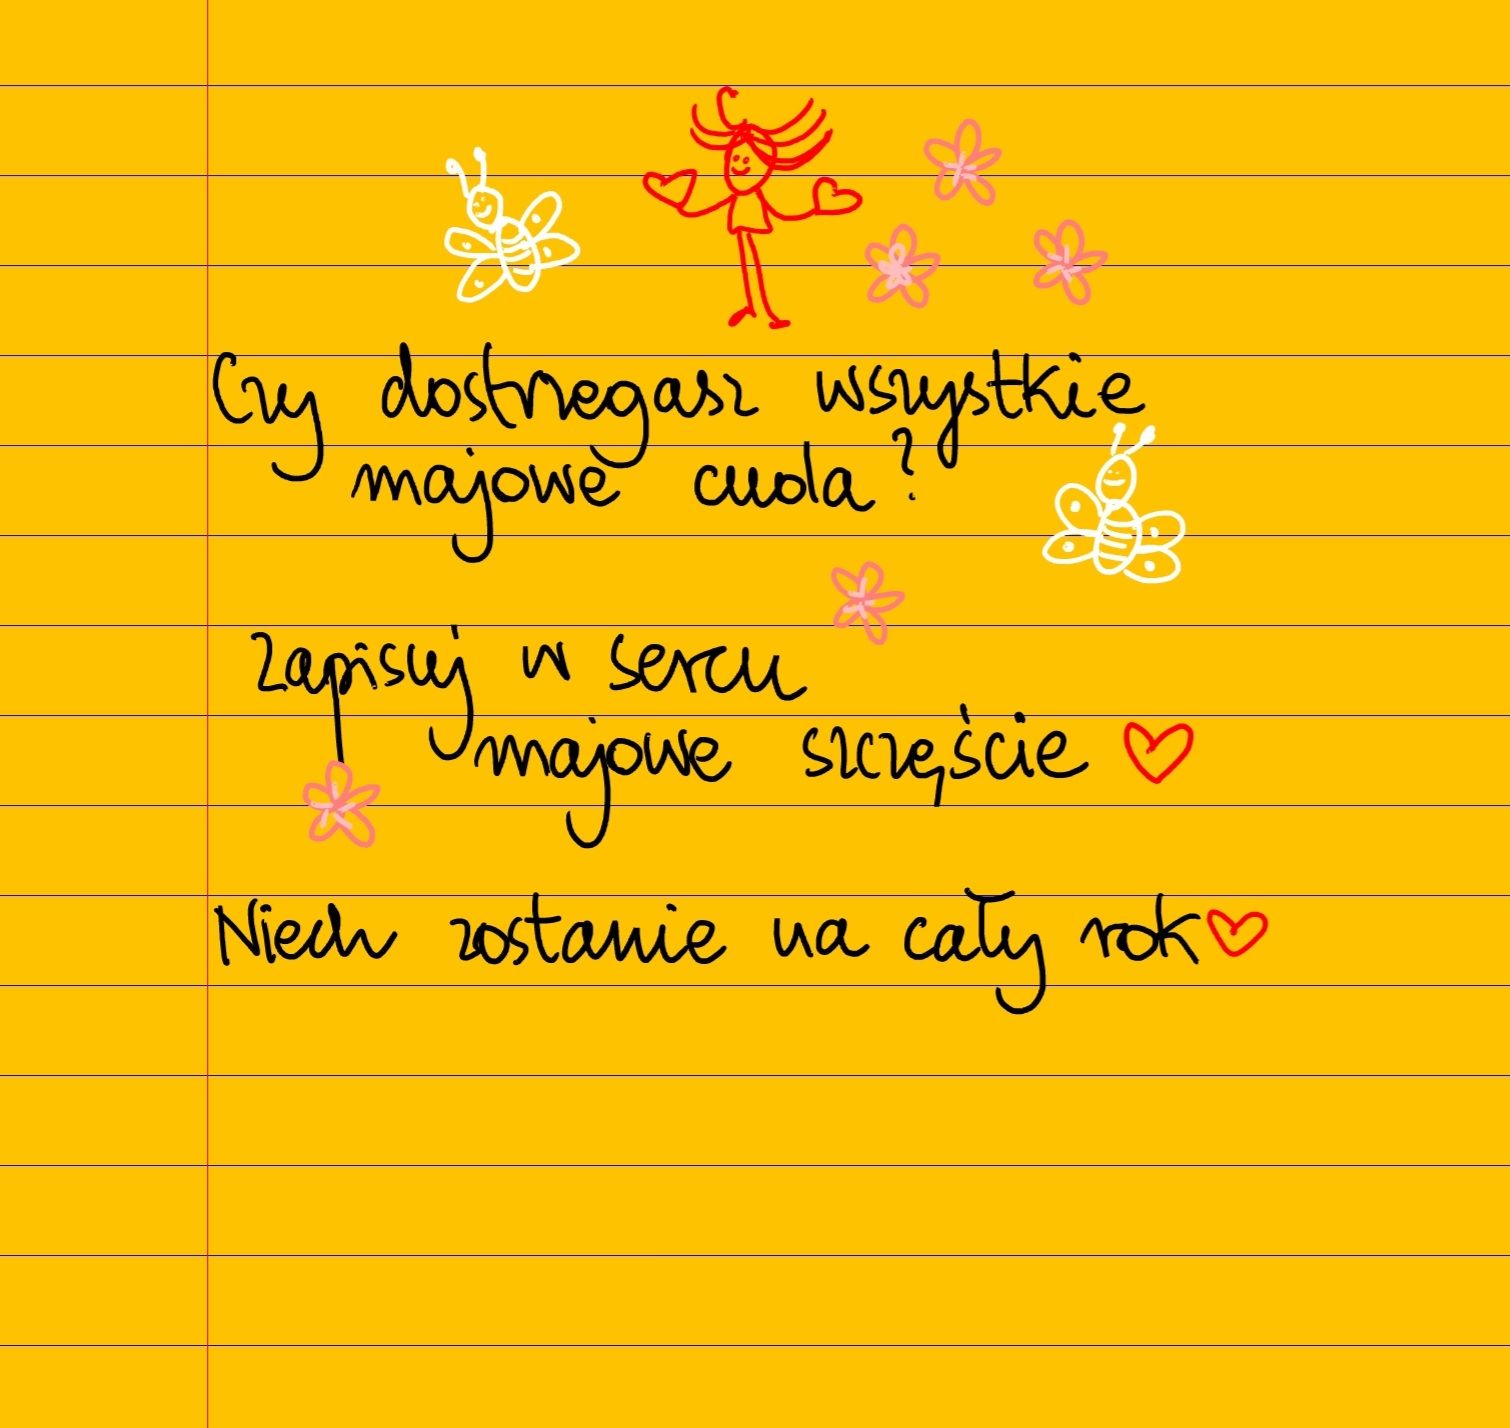 Czy dostrzegasz wszystkie
majowe cuda?
Zapisuj w sercu
majowe szczęście
Niech zostanie na cały rok